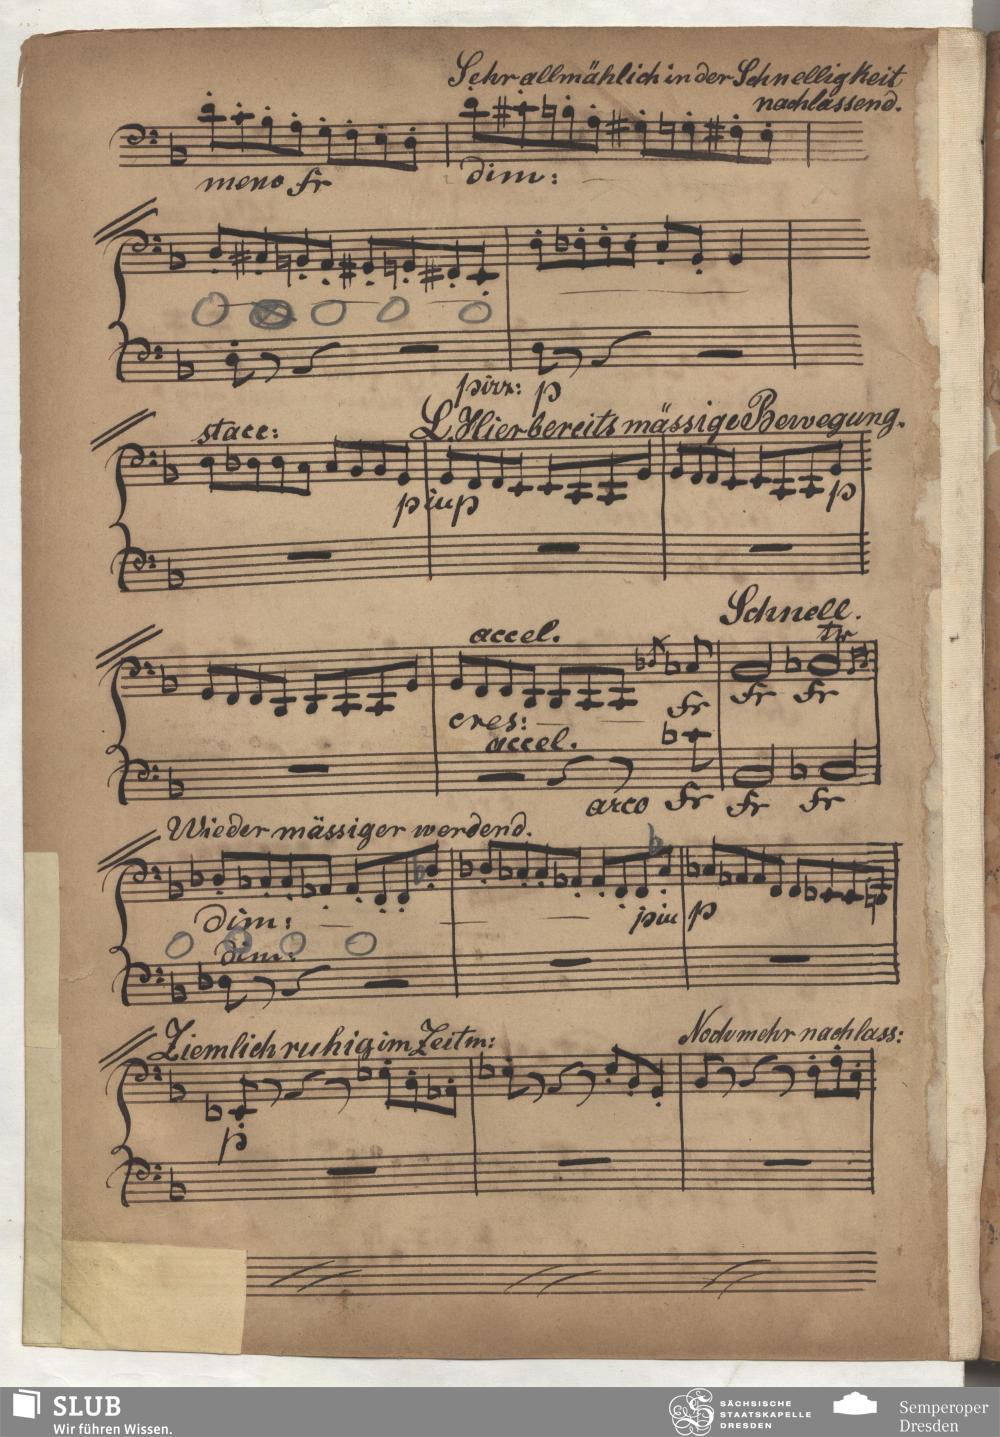 Sehr allmählich in der Schnelligkeit
nachlassend.
meno fr dim:
pizz: p
stacc: L Hier bereits mässige Bewegung.
più p p
accel. Schnell.
tr
cres: fr fr fr
accel.
arco fr fr fr
Wieder mässiger werdend.
dim: più p
dim:
Ziemlich ruhig im Zeitm: Noch mehr nachlass:
p
SLUB
Wir führen Wissen.
SÄCHSISCHE
STAATSKAPELLE
DRESDEN
Semperoper
Dresden